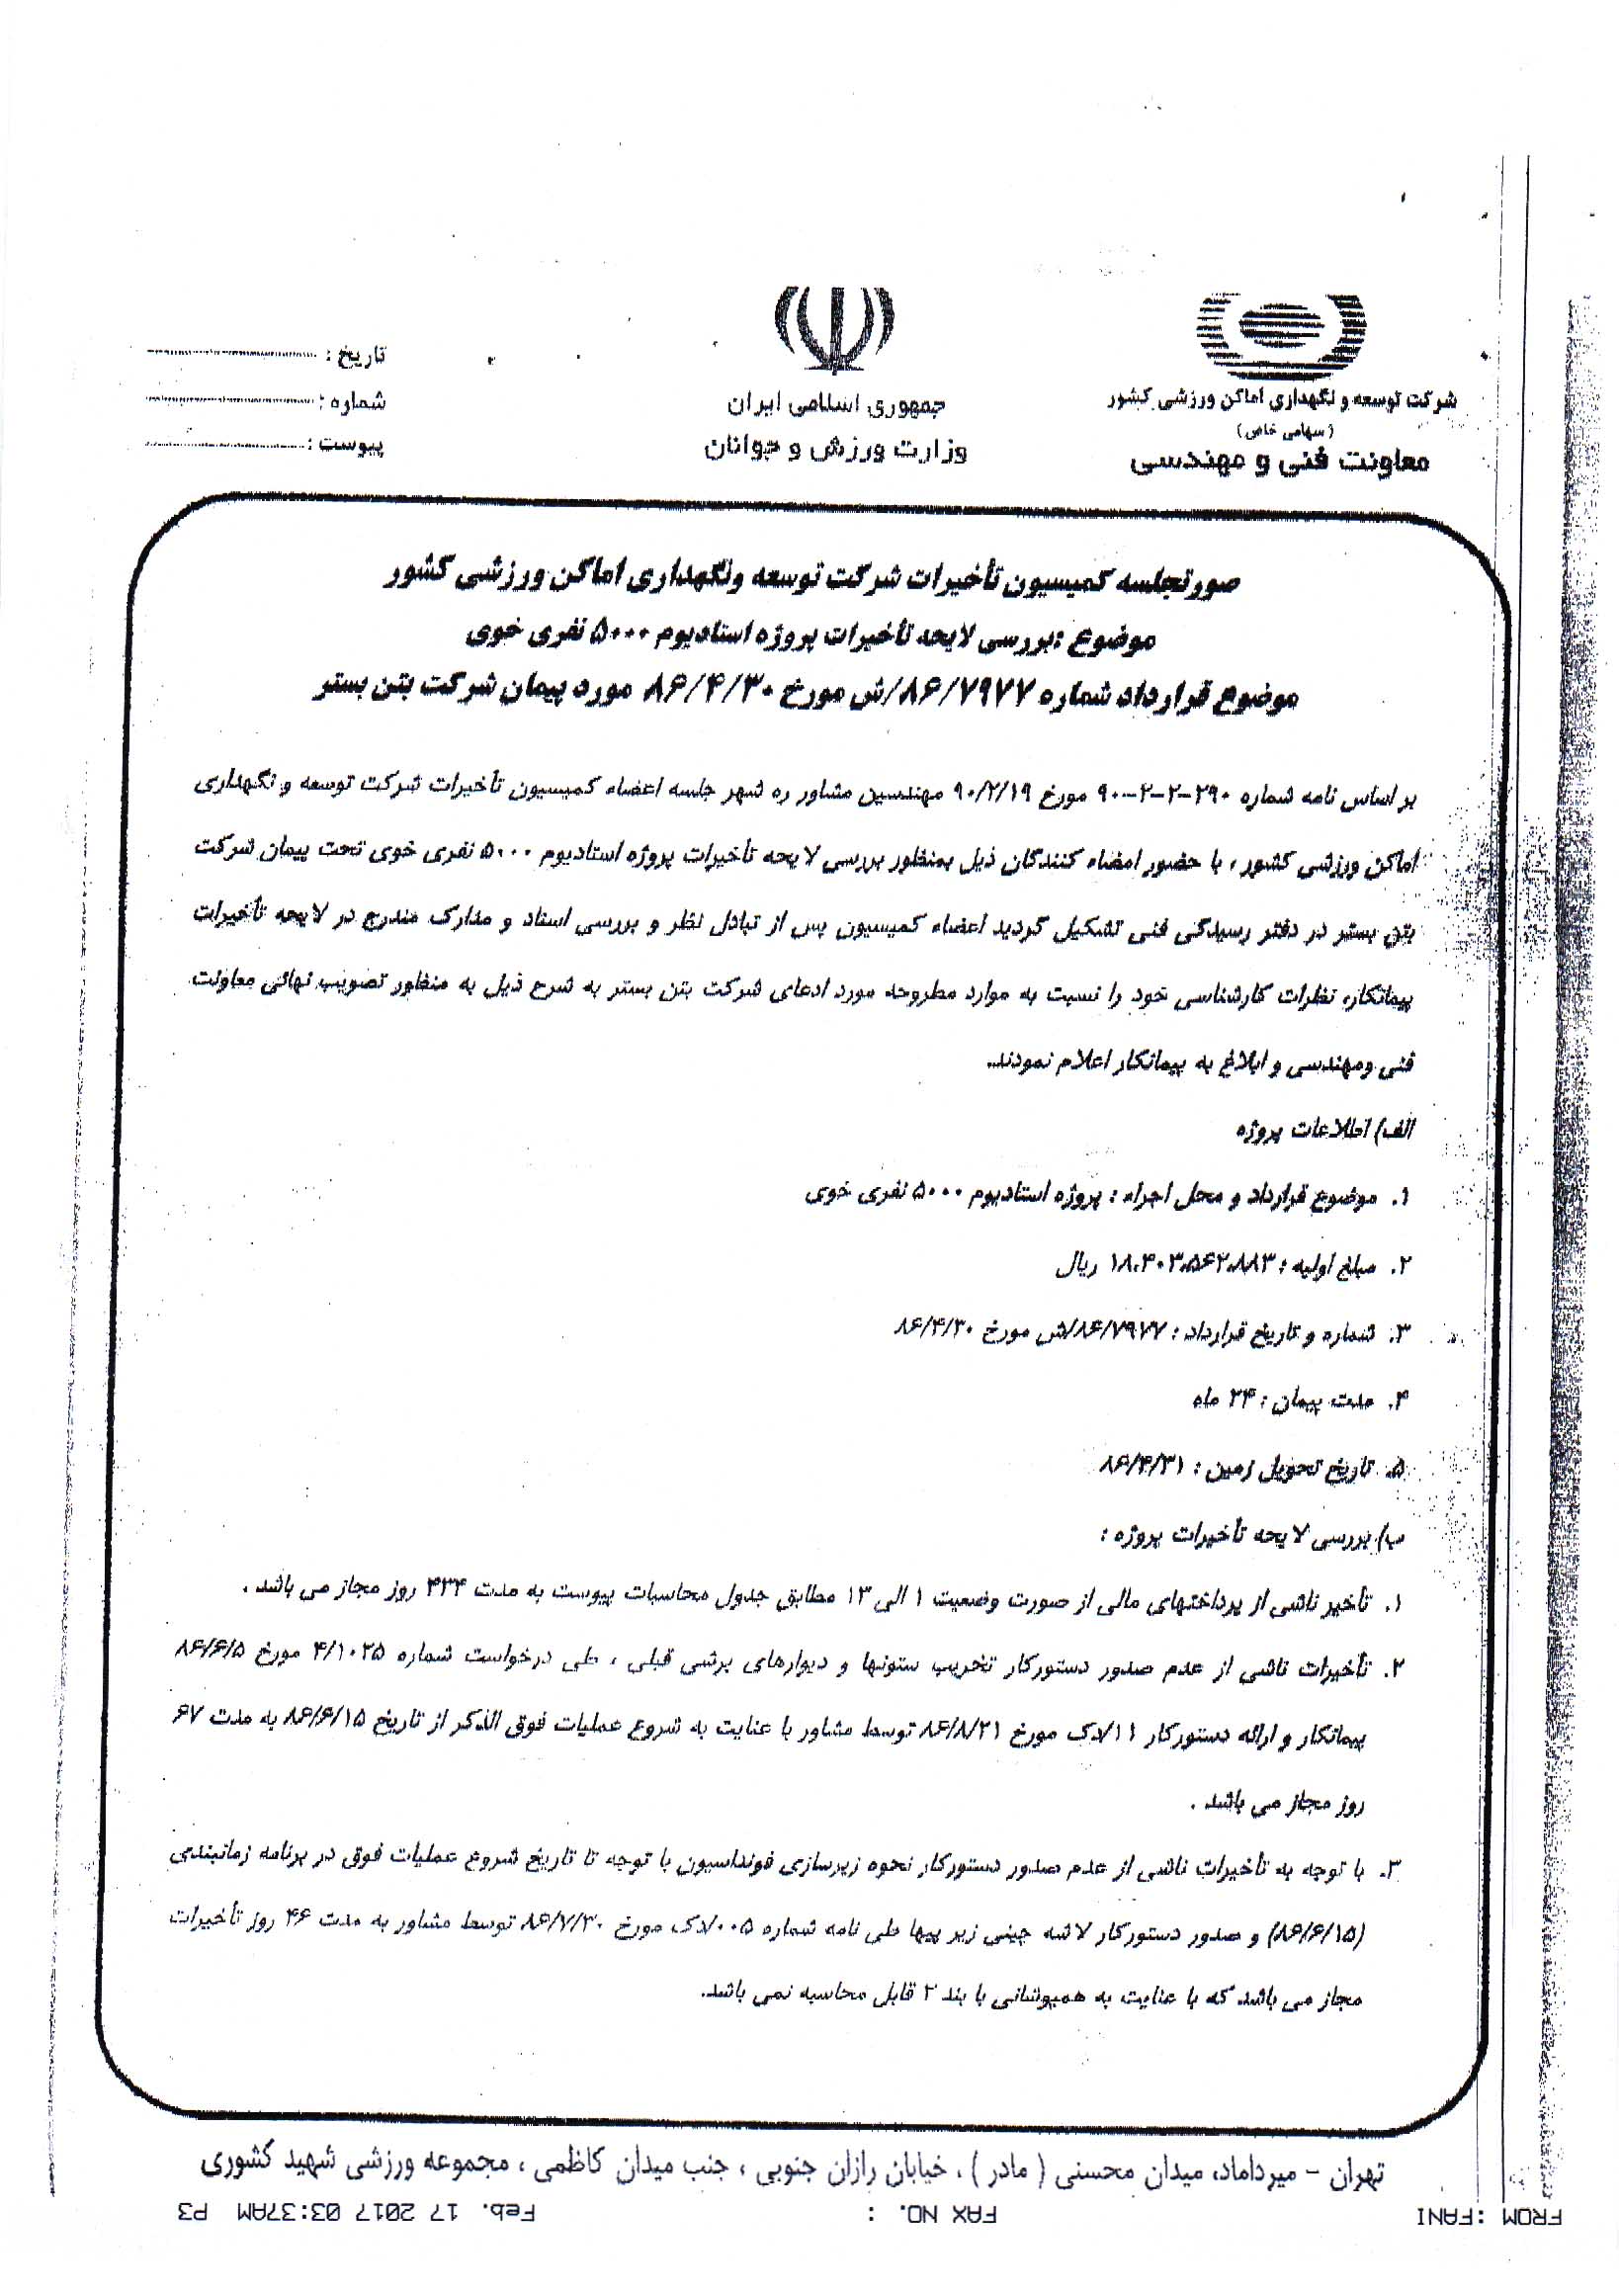 شرکت توسعه و نگهداری اماکن ورزشی کشور
(سهامی خاص)
معاونت فنی و مهندسی
جمهوری اسلامی ایران
وزارت ورزش و جوانان
تاریخ :
شماره :
پیوست :
صورتجلسه کمیسیون تأخیرات شرکت توسعه ونگهداری اماکن ورزشی کشور
موضوع :بررسی لایحه تأخیرات پروژه استادیوم ۵۰۰۰ نفری خوی
موضوع قرارداد شماره ۸۶/۷۹۷۷/ش مورخ ۸۶/۴/۳۰ مورد پیمان شرکت بتن بستر
بر اساس نامه شماره ۲۹۰-۲-۲-۹۰ مورخ ۹۰/۲/۱۹ مهندسین مشاور ره شهر جلسه اعضاء کمیسیون تأخیرات شرکت توسعه و نگهداری
اماکن ورزشی کشور ، با حضور امضاء کنندگان ذیل بمنظور بررسی لایحه تأخیرات پروژه استادیوم ۵۰۰۰ نفری خوی تحت پیمان شرکت
بتن بستر در دفتر رسیدگی فنی تشکیل گردید اعضاء کمیسیون پس از تبادل نظر و بررسی اسناد و مدارک مندرج در لایحه تأخیرات
پیمانکار، نظرات کارشناسی خود را نسبت به موارد مطروحه مورد ادعای شرکت بتن بستر به شرح ذیل به منظور تصویب نهائی معاونت
فنی ومهندسی و ابلاغ به پیمانکار اعلام نمودند.
الف) اطلاعات پروژه
۱. موضوع قرارداد و محل اجراء : پروژه استادیوم ۵۰۰۰ نفری خوی
۲. مبلغ اولیه : ۱۸،۴۰۳،۵۶۲،۸۸۳ ریال
۳. شماره و تاریخ قرارداد : ۸۶/۷۹۷۷/ش مورخ ۸۶/۴/۳۰
۴. مدت پیمان : ۲۴ ماه
۵. تاریخ تحویل زمین : ۸۶/۴/۳۱
ب) بررسی لایحه تأخیرات پروژه :
۱. تأخیر ناشی از پرداختهای مالی از صورت وضعیت ۱ الی ۱۳ مطابق جدول محاسبات پیوست به مدت ۴۳۴ روز مجاز می باشد .
۲. تأخیرات ناشی از عدم صدور دستورکار تخریب ستونها و دیوارهای برشی قبلی ، طی درخواست شماره ۴/۱۰۲۵ مورخ ۸۶/۶/۵
پیمانکار و ارائه دستورکار ۱۱/دک مورخ ۸۶/۸/۲۱ توسط مشاور با عنایت به شروع عملیات فوق الذکر از تاریخ ۸۶/۶/۱۵ به مدت ۶۷
روز مجاز می باشد .
۳. با توجه به تأخیرات ناشی از عدم صدور دستورکار نحوه زیرسازی فونداسیون با توجه تا تاریخ شروع عملیات فوق در برنامه زمانبندی
(۸۶/۶/۱۵) و صدور دستورکار لاشه چینی زیر پیها طی نامه شماره ۰۰۵/دک مورخ ۸۶/۷/۳۰ توسط مشاور به مدت ۴۶ روز تأخیرات
مجاز می باشد که با عنایت به همپوشانی با بند ۲ قابل محاسبه نمی باشد.
تهران - میرداماد، میدان محسنی ( مادر ) ، خیابان رازان جنوبی ، جنب میدان کاظمی ، مجموعه ورزشی شهید کشوری
FROM :FANI FAX NO. : Feb. 17 2017 03:37AM P3